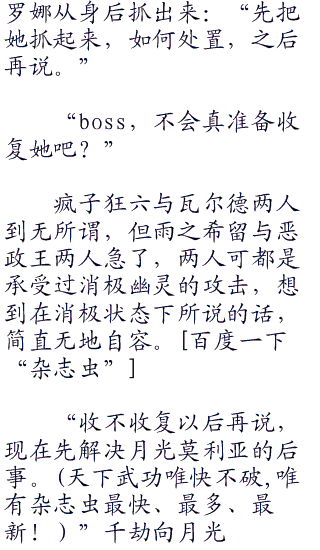 罗娜从身后抓出来：“先把
她抓起来，如何处置，之后
再说。”
“boss，不会真准备收
复她吧？”
疯子狂六与瓦尔德两人
到无所谓，但雨之希留与恶
政王两人急了，两人可都是
承受过消极幽灵的攻击，想
到在消极状态下所说的话，
简直无地自容。[百度一下
“杂志虫”]
“收不收复以后再说，
现在先解决月光莫利亚的后
事。(天下武功唯快不破,唯
有杂志虫最快、最多、最
新！)”千劫向月光